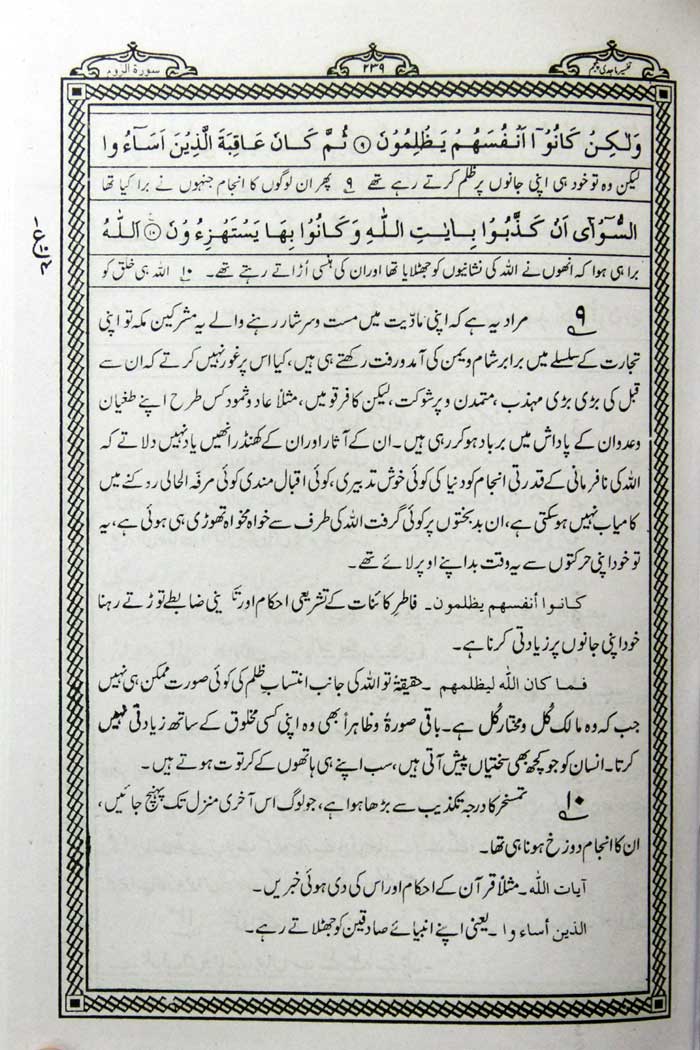 تفسیر ماجدی پنجم
۲۳۹
سورة الروم
وَلٰكِنْ كَانُوْۤا اَنْفُسَهُمْ يَظْلِمُوْنَ ۹ ثُمَّ كَانَ عَاقِبَةَ الَّذِيْنَ اَسَآءُوا
لیکن وہ تو خود ہی اپنی جانوں پر ظلم کرتے رہے تھے ۹ پھر ان لوگوں کا انجام جنہوں نے برا کیا تھا
السُّوْٓاٰى اَنْ كَذَّبُوْا بِاٰيٰتِ اللّٰهِ وَكَانُوْا بِهَا يَسْتَهْزِءُوْنَ ۱۰ اَللّٰهُ
برا ہی ہوا کہ انھوں نے اللہ کی نشانیوں کو جھٹلایا تھا اور ان کی ہنسی اُڑاتے رہتے تھے۔ ۱۰ اللہ ہی خلق کو
۹ مراد یہ ہے کہ اپنی مادّیت میں مست و سرشار رہنے والے یہ مشرکین مکہ تو اپنی
تجارت کے سلسلے میں برابر شام و یمن کی آمد و رفت رکھتے ہی ہیں، کیا اس پر غور نہیں کرتے کہ ان سے
قبل کی بڑی بڑی مہذب، متمدن و پر شوکت، لیکن کافر قومیں، مثلاً عاد و ثمود کس طرح اپنے طغیان
و عدوان کے پاداش میں برباد ہو کر رہی ہیں۔ ان کے آثار اور ان کے کھنڈر انھیں یاد نہیں دلاتے کہ
اللہ کی نافرمانی کے قدرتی انجام کو دنیا کی کوئی خوش تدبیری، کوئی اقبال مندی کوئی مرفّہ الحالی روکنے میں
کامیاب نہیں ہو سکتی ہے، ان بدبختوں پر کوئی گرفت اللہ کی طرف سے خواہ مخواہ تھوڑی ہی ہوئی ہے، یہ
تو خود اپنی حرکتوں سے یہ وقت بد اپنے اوپر لائے تھے۔
كانوا أنفسهم يظلمون۔ فاطرِ کائنات کے تشریعی احکام اور تکوینی ضابطے توڑتے رہنا
خود اپنی جانوں پر زیادتی کرنا ہے۔
فما كان الله ليظلمهم ۔ حقیقۃً تو اللہ کی جانب انتساب ظلم کی کوئی صورت ممکن ہی نہیں
جب کہ وہ مالک کُل و مختار کُل ہے۔ باقی صورۃً و ظاہراً بھی وہ اپنی کسی مخلوق کے ساتھ زیادتی نہیں
کرتا۔ انسان کو جو کچھ بھی سختیاں پیش آتی ہیں، سب اپنے ہی ہاتھوں کے کرتوت ہوتے ہیں۔
۱۰ تمسخر کا درجہ تکذیب سے بڑھا ہوا ہے، جو لوگ اس آخری منزل تک پہنچ جائیں،
ان کا انجام دوزخ ہونا ہی تھا۔
آيات الله ۔ مثلاً قرآن کے احکام اور اس کی دی ہوئی خبریں۔
الذين أساءوا ۔ یعنی اپنے انبیائے صادقین کو جھٹلاتے رہے۔